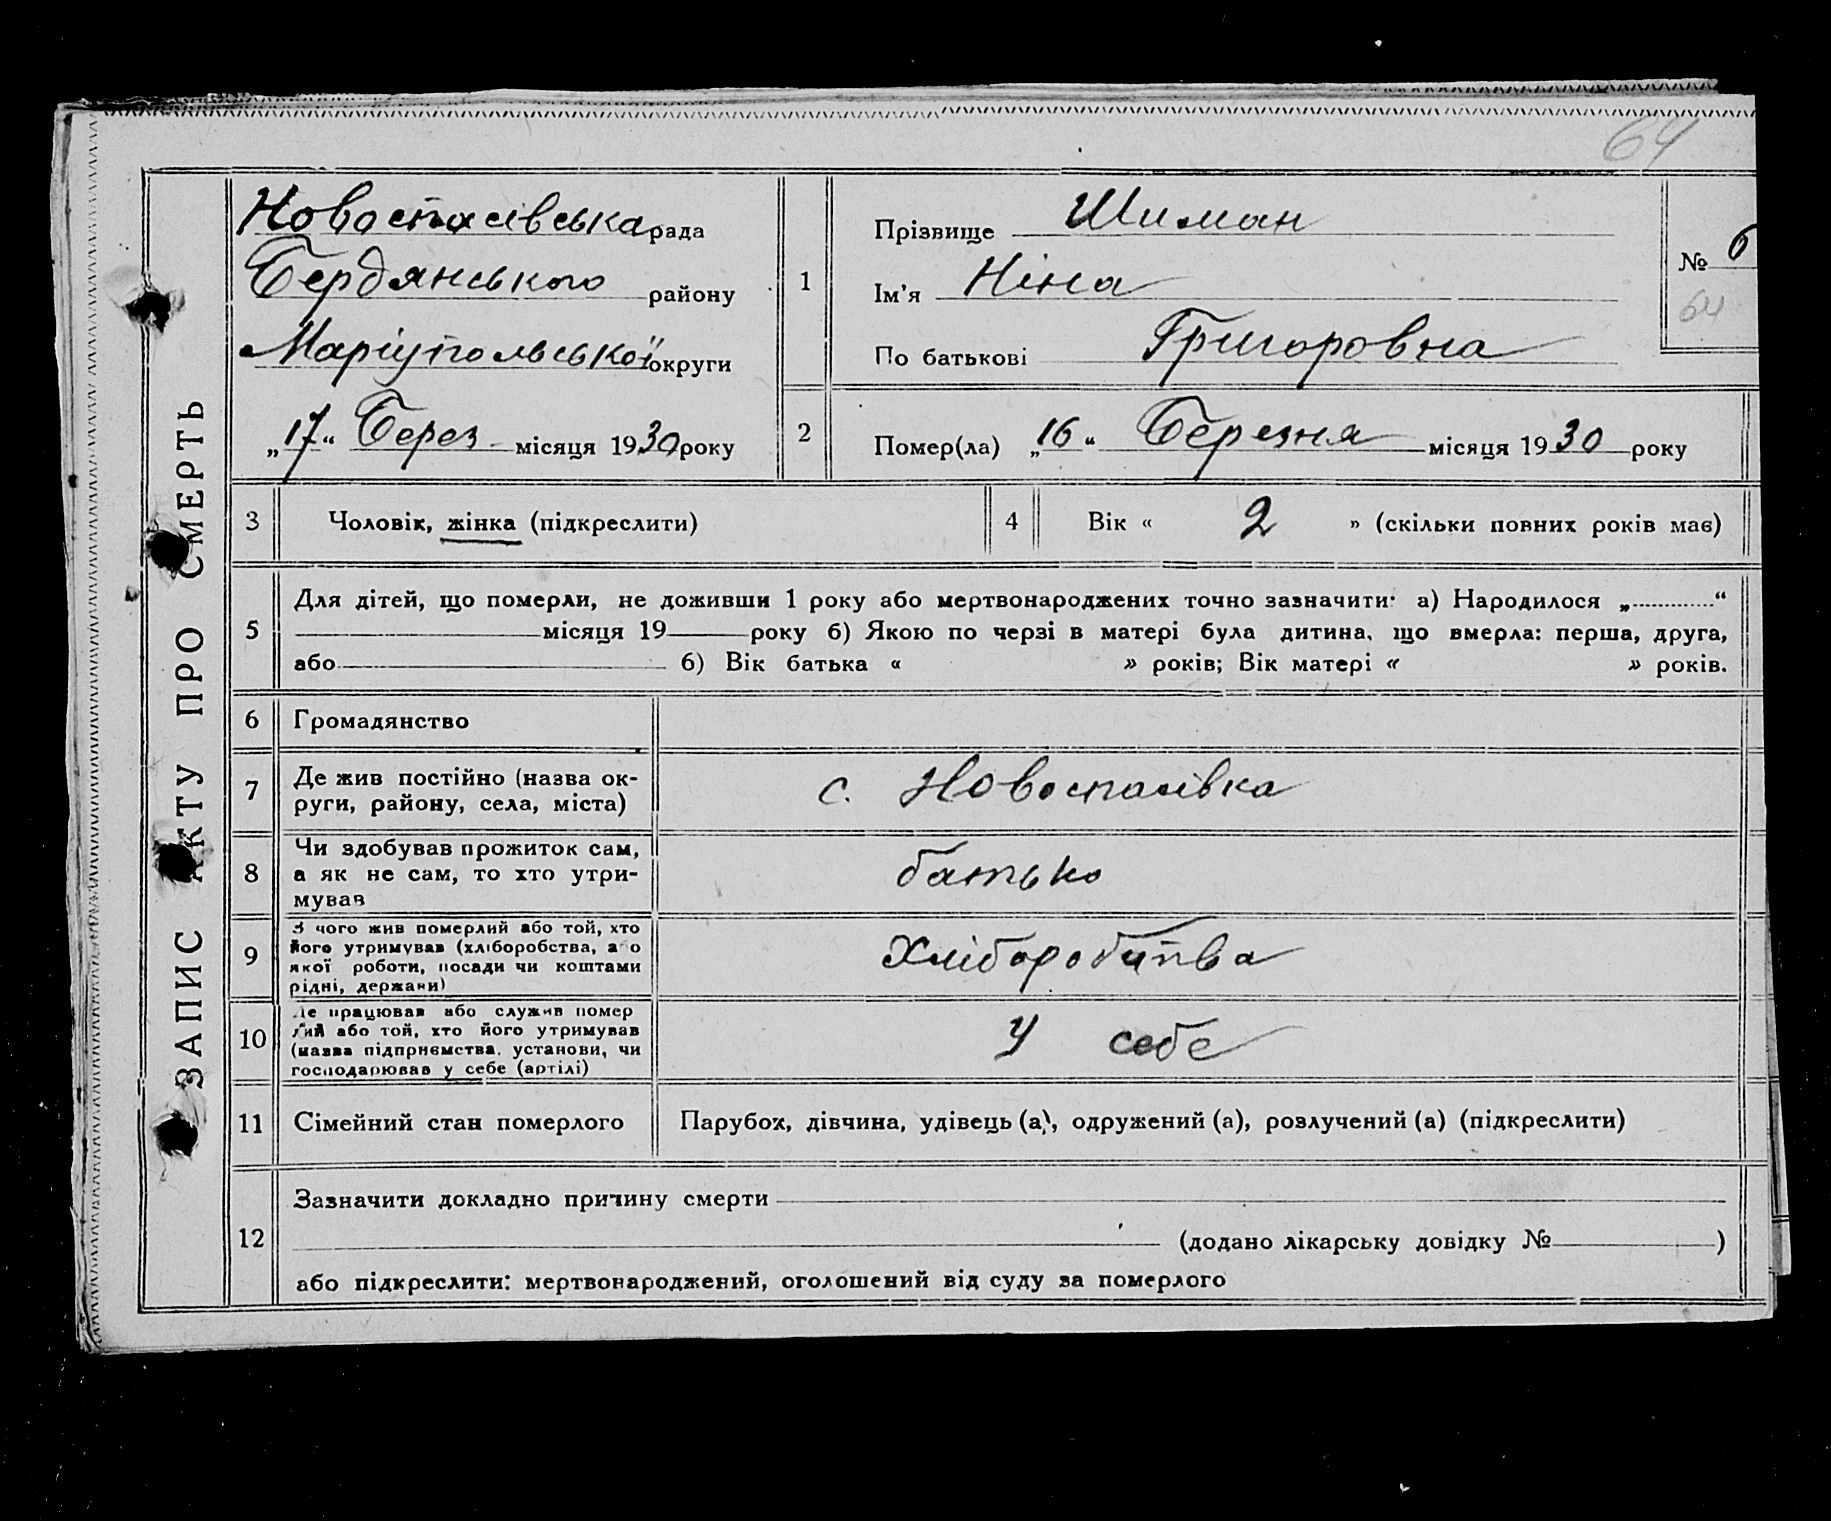 64
ЗАПИС АКТУ ПРО СМЕРТЬ
Новоспасівська рада
Бердянського району
Маріупольської округи
„17“ Берез місяця 1930 року
1
Прізвище Шиман
Ім'я Ніна
По батькові Григоровна
№ 6
64
2
Помер(ла) „16“ Березня місяця 1930 року
3 Чоловік, жінка (підкреслити)
4 Вік « 2 » (скільки повних років має)
5
Для дітей, що померли, не доживши 1 року або мертвонароджених точно зазначити: а) Народилося „ “
місяця 19 року б) Якою по черзі в матері була дитина, що вмерла: перша, друга,
або б) Вік батька « » років; Вік матері « » років.
6 Громадянство
7
Де жив постійно (назва ок-
руги, району, села, міста)
с. Новоспасівка
8
Чи здобував прожиток сам,
а як не сам, то хто утри-
мував
батько
9
З чого жив померлий або той, хто
його утримував (хліборобства, або
якої роботи, посади чи коштами
рідні, держави)
Хліборобство
10
Де працював або служив помер
лий або той, хто його утримував
(назва підприємства, установи, чи
господарював у себе (артілі)
У себе
11 Сімейний стан померлого
Парубок, дівчина, удівець (а), одружений (а), розлучений (а) (підкреслити)
12
Зазначити докладно причину смерти
(додано лікарську довідку № )
або підкреслити: мертвонароджений, оголошений від суду за померлого